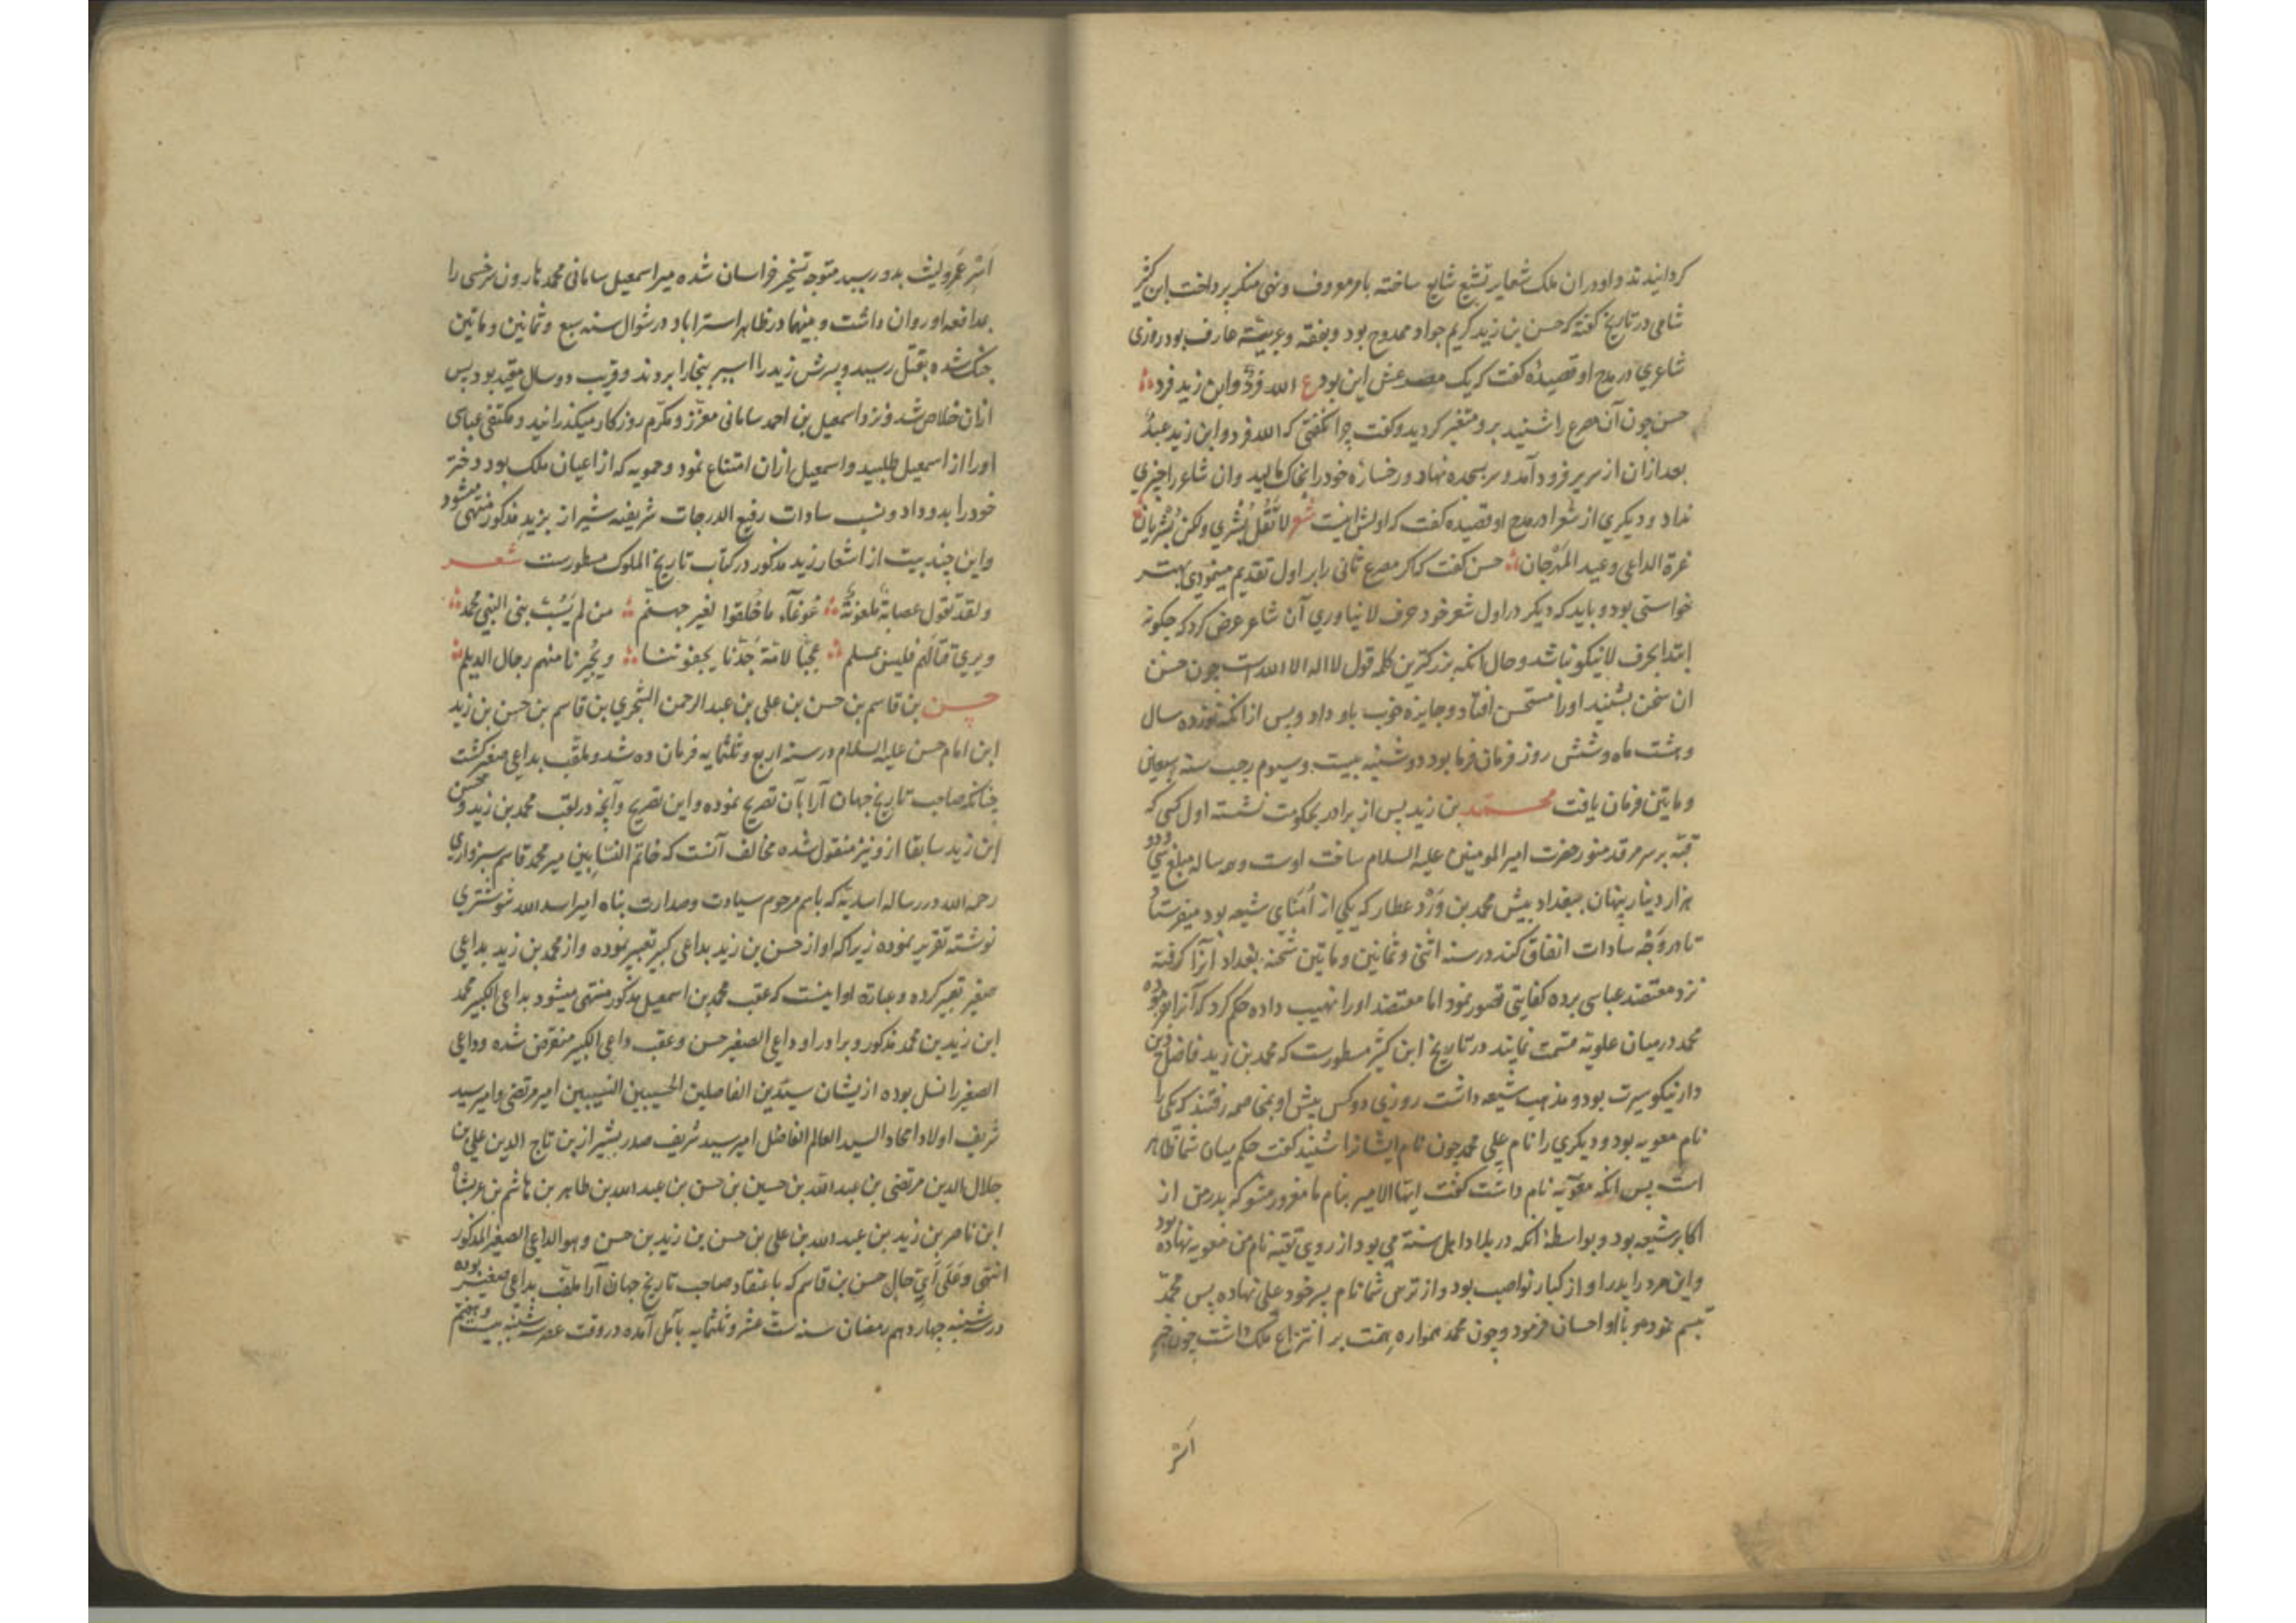 کردانیدند و او دران ملک شعایر تشیع شایع ساخته بامر معروف و نهی منکر پرداخت ابن کثیر
شامی در تاریخ کفته که حسن بن زید کریم جواد ممدوح بود و بفقه و عربیته عارف بود روزی
شاعری در مدح او قصیده کفت که یک مصرعش این بود ع الله فرد وابن زید فرد
حسن چون آن مصرع را شنید برو متغیر کردید و کفت چرا نکفتی که الله فرد وابن زید عبد
بعد ازان از سریر فرود آمد و سر بسجده نهاد و رخساره خود را بخاک مالید وان شاعر را چیزی
نداد و دیکری از شعرا در مدح او قصیده کفت که اولش اینست شعر لا تقل بشری ولکن بشریان
غرة الداعی وعید المهرجان حسن کفت که اکر مصرع ثانی را بر اول تقدیم مینمودی بهتر
خواستی بود و باید که دیکر در اول شعر خود حرف لا نیاوری آن شاعر عرض کرد که چکونه
ابتدا بحرف لا نیکو نباشد و حال انکه بزرکترین کلمه قول لا اله الا الله است چون حسن
ان سخن بشنید او را مستحسن افتاد و جایزه خوب باو داد و پس از انکه نوزده سال
و هشت ماه و شش روز فرمان فرما بود دوشنبه بیست و سیوم رجب سنه سبعین
و ماتین فرمان یافت محمد بن زید پس از برادر بحکومت نشسته اول کسی که
قبه بر سر مرقد منور حضرت امیر المومنین علیه السلام ساخت اوست و هر ساله مبلغ سی و دو
هزار دینار پنهان ببغداد پیش محمد بن ورد عطار که یکی از امنای شیعه بود میفرستاد
تا در وجه سادات انفاق کند در سنه اثنی و ثمانین و ماتین شحنه بغداد آنرا کرفته
نزد معتضد عباسی برده کفایتی تصور نمود اما معتضد او را نهیب داده حکم کرد که آنرا بفرموده
محمد درمیان علویه قسمت نمایند در تاریخ ابن کثیر مسطورست که محمد بن زید فاضل دین
دار نیکو سیرت بود و مذهب شیعه داشت روزی دو کس پیش او بمخاصمه رفتند که یکی را
نام معویه بود و دیکری را نام علی محمد چون نام ایشانرا شنید کفت حکم میان شما ظاهر
است پس انکه معویه نام داشت کفت ایها الامیر بنام ما مغرور مشو که پدر من از
اکابر شیعه بود و بواسطه انکه در بلاد اهل سنت می بود از روی تقیه نام من معویه نهاده بود
واین مرد را پدر او از کبار نواصب بود و از ترس شما نام پسر خود علی نهاده پس محمد
تبسم نمود و با او احسان فرمود و چون محمد همواره همت بر انتزاع ملک داشت چون خبر
اسر
اسر عمرو لیث بدو رسید متوجه تسخیر خراسان شده میر اسمعیل سامانی محمد هارون سرخسی را
بمدافعه او روان داشت و بینهما در ظاهر استراباد در شوال سنه سبع و ثمانین و ماتین
جنک شده بقتل رسید و پسرش زید را اسیر ببخارا بردند و قریب دو سال مقید بود پس
ازان خلاص شد و نزد اسمعیل بن احمد سامانی معزز و مکرم روزکار میکذرانید و مکتفی عباسی
او را از اسمعیل طلبید و اسمعیل ازان امتناع نمود و حمویه که از اعیان ملک بود دختر
خود را بدو داد و نسب سادات رفیع الدرجات شریفیه شیراز بزید مذکور منتهی میشود
واین چند بیت از اشعار زید مذکور در کتاب تاریخ الملوک مسطورست شعر
ولقد تقول عصابة ملعونة غوغاء ما خلقوا لغیر جهنم من لم یسب بنی النبی محمد
ویری قتالهم فلیس بمسلم عجبا لامة جدنا یجفوننا ویجیرنا منهم رجال الدیلم
حسن بن قاسم بن حسن بن علی بن عبد الرحمن الشجری بن قاسم بن حسن بن زید
ابن امام حسن علیه السلام در سنه اربع و ثلثمایه فرمان ده شد و ملقب بداعی صغیر کشت
چنانکه صاحب تاریخ جهان آرا بآن تصریح نموده واین تصریح وآنچه در لقب محمد بن زید و حسن
ابن زید سابقا ازو نیز منقول شده مخالف آنست که خاتم النسابین میر محمد قاسم سبزواری
رحمه الله در رساله اسدیه که باسم مرحوم سیادت و صدارت پناه امیر اسد الله شوشتری
نوشته تقریر نموده زیرا که او از حسن بن زید بداعی کبیر تعبیر نموده و از محمد بن زید بداعی
صغیر تعبیر کرده و عبارة او اینست که عقب محمد بن اسمعیل مذکور منتهی میشود بداعی الکبیر محمد
ابن زید بن محمد مذکور و برادر او داعی الصغیر حسن و عقب داعی الکبیر منقرض شده و داعی
الصغیر را نسل بوده از یشان سیدین الفاضلین الحسیبین النسیبین امیر مرتضی و امیر سید
شریف اولاد امجاد السید العالم الفاضل امیر سید شریف صدر بشیراز بن تاج الدین علی بن
جلال الدین مرتضی بن عبد الله بن حسین بن حسن بن عبد الله بن طاهر بن هاشم بن عربشاه
ابن ناصر بن زید بن عبد الله بن علی بن حسن بن زید بن حسن و هو الداعی الصغیر المذکور
انتهی و علی ای حال حسن بن قاسم که باعتقاد صاحب تاریخ جهان آرا ملقب بداعی صغیر بوده
در سه شنبه چهاردهم رمضان سنه ست عشر و ثلثمایه بآمل آمده در وقت عصر سه شنبه بیست و هفتم